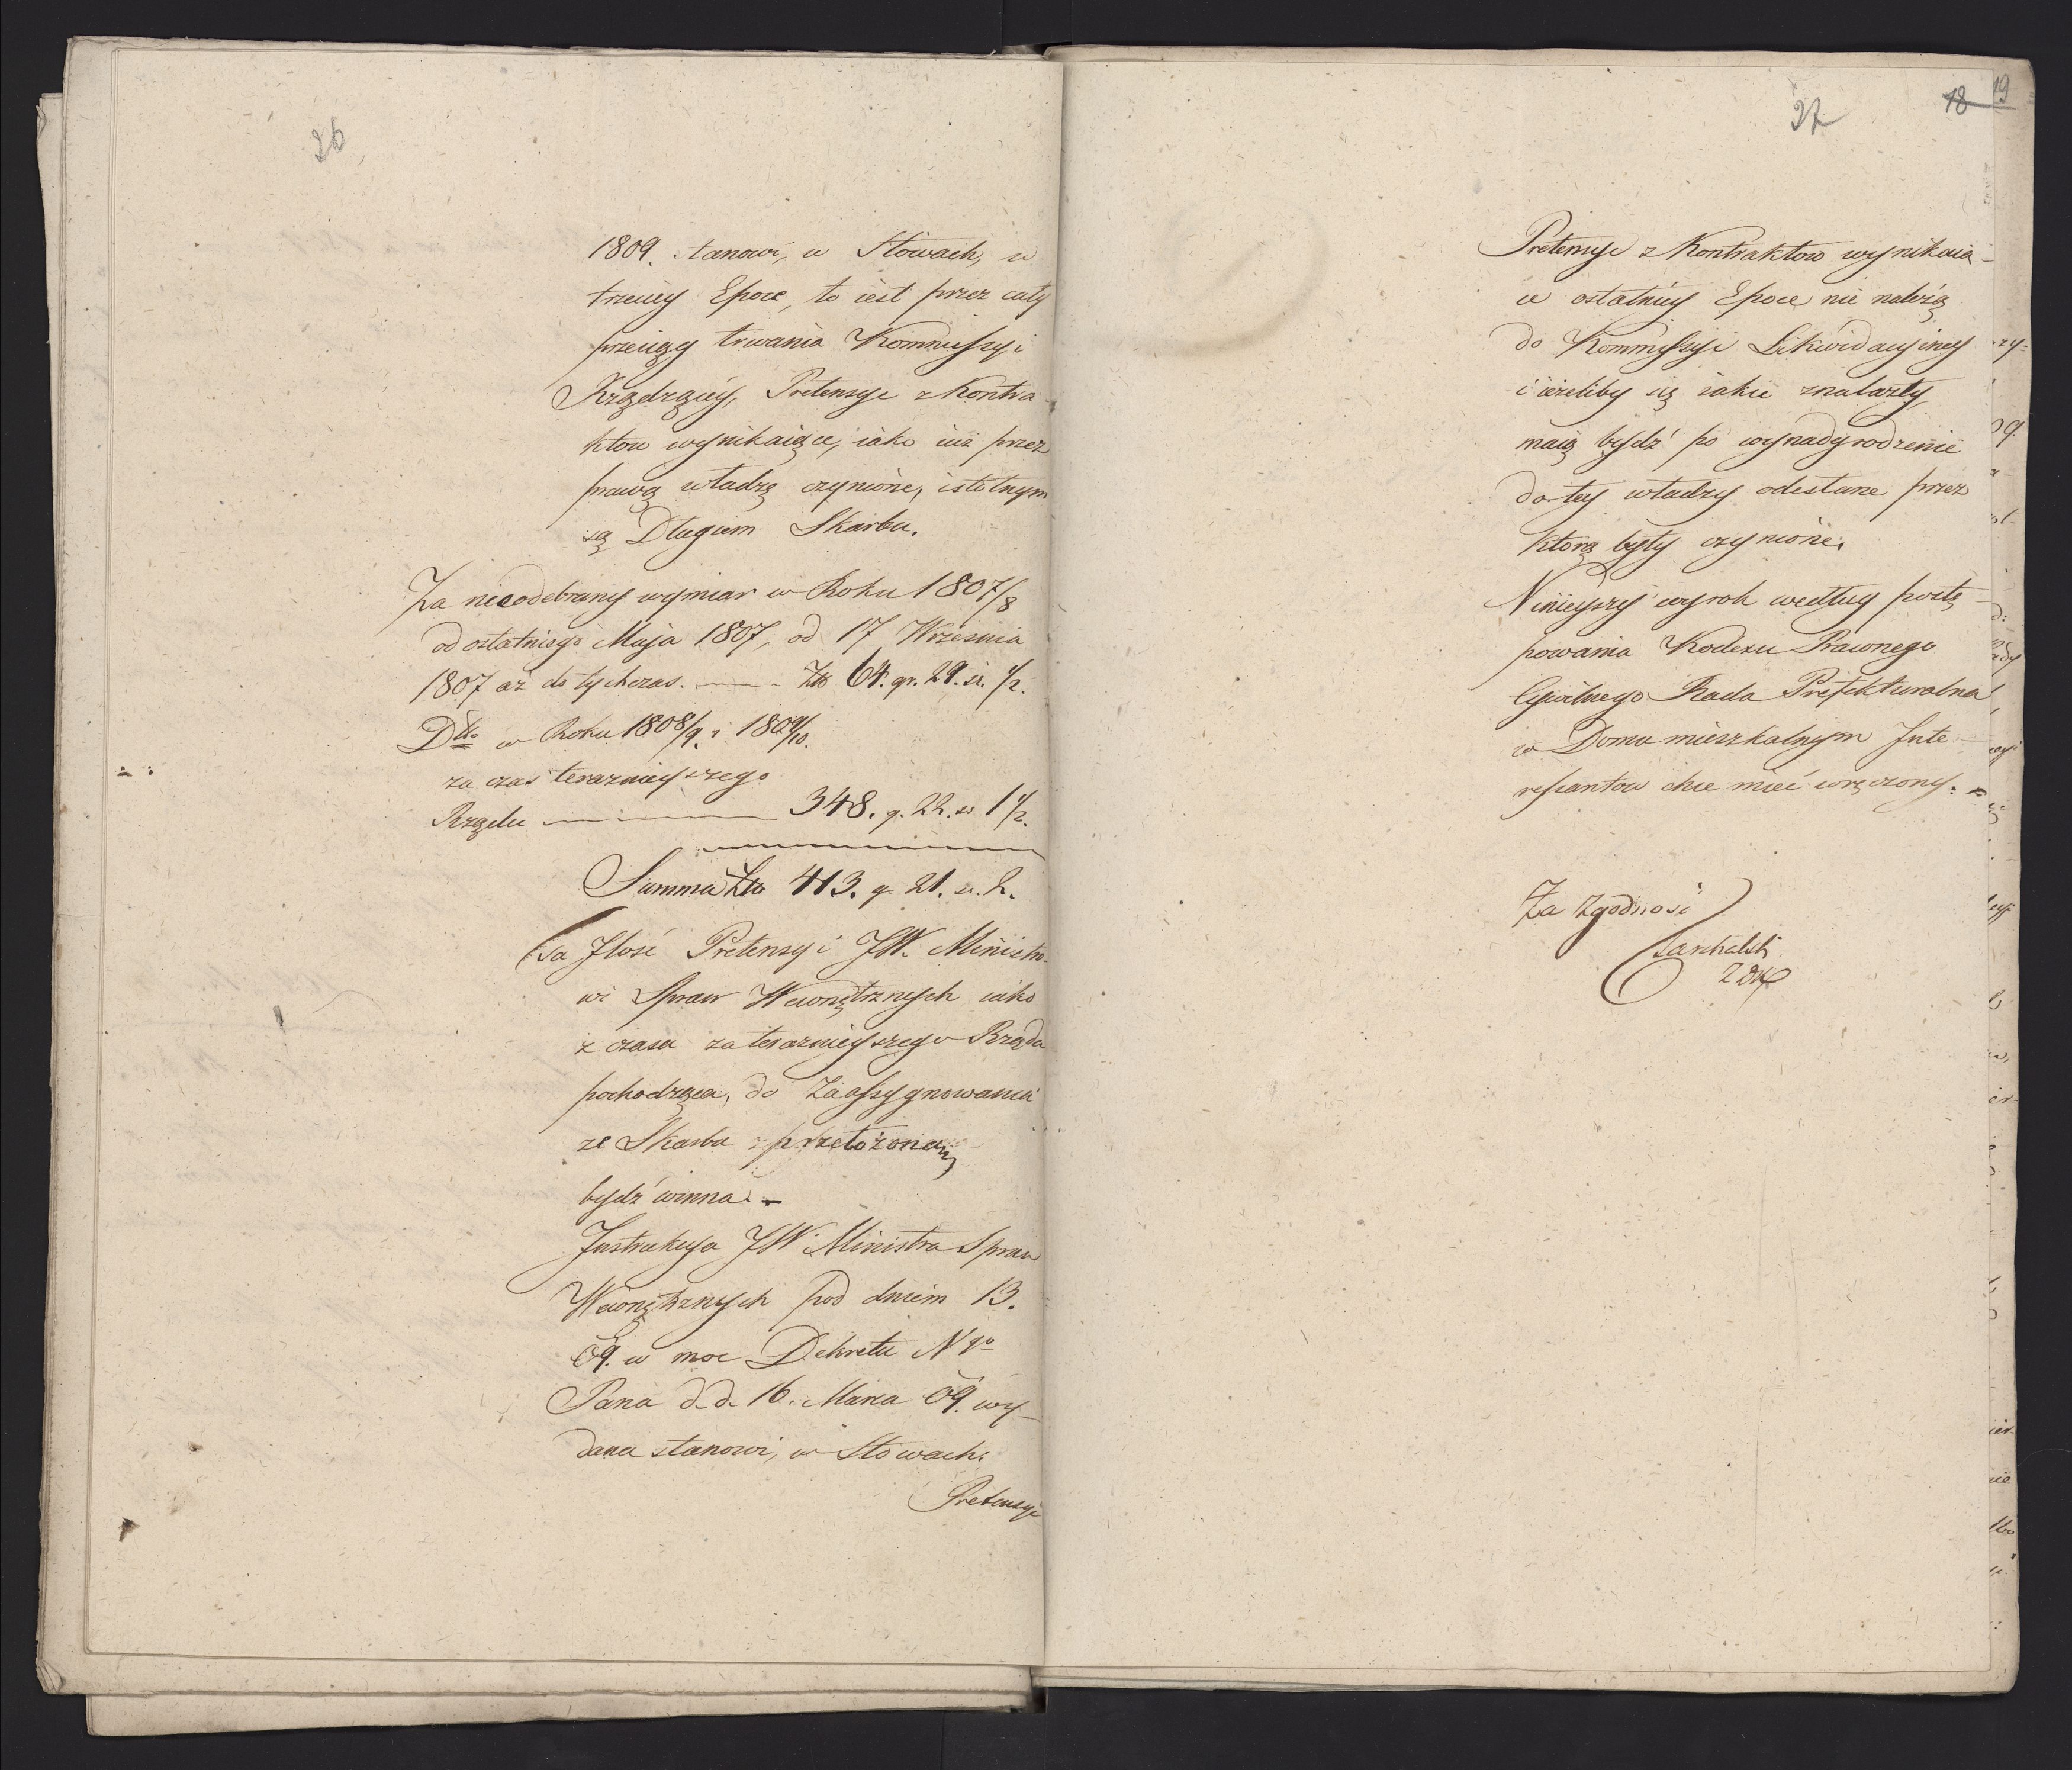 26
1809. stanowi, w Słowach, w
trzeciey Epoce, to iest przez cały
przeciąg trwania Kommissyi
Rządzącey, Pretensye z Kontra-
któw wynikaiące, iako iuż przez
prawą władzę czynione, istotnym
są Długiem Skarbu.
Za nieodebrany wymiar w Roku 1807/8
od ostatniego Maja 1807, od 17 Wrzesnia
1807 aż do tychczas. — Zło 64. gr. 29. sz. 1/2.
Dtto w Roku 1808/9. i 1809/10.
za czas terazniejszego
Rządu — 348. g. 22. sz 1 1/2.
Summa Zło 413. g. 21. sz. 2.
ta Ilosć Pretensyi JW. Ministro-
wi Spraw Wewnętrznych iako
z czasu za terazniejszego Rządu
pochodząca, do Zaassygnowania
ze Skarbu przełożona
bydź winna. —
Instrukcya JW. Ministra Spraw
Wewnętrznych pod dniem 13.
09. w moc Dekretu N go
Pana d. d. 16. Marca 09. wy-
dana stanowi, w Słowach:
Pretensye
27
18 19
Pretensye z Kontraktow wynikaią-
ce ostatniey Epoce nie należą
do Kommissyi Likwidacyiney
i ieżeliby się iakie znalazły
maią bydź po wynadgrodzenie
do tey władzy odesłane przez
którą były czynione.
Ninieyszy wyrok według postę-
powania Kodexu Prawnego
Cywilnego Rada Prefekturalna
w Domu mieszkalnym Inte-
ressantow chce mieć wręczony.
Za Zgodność